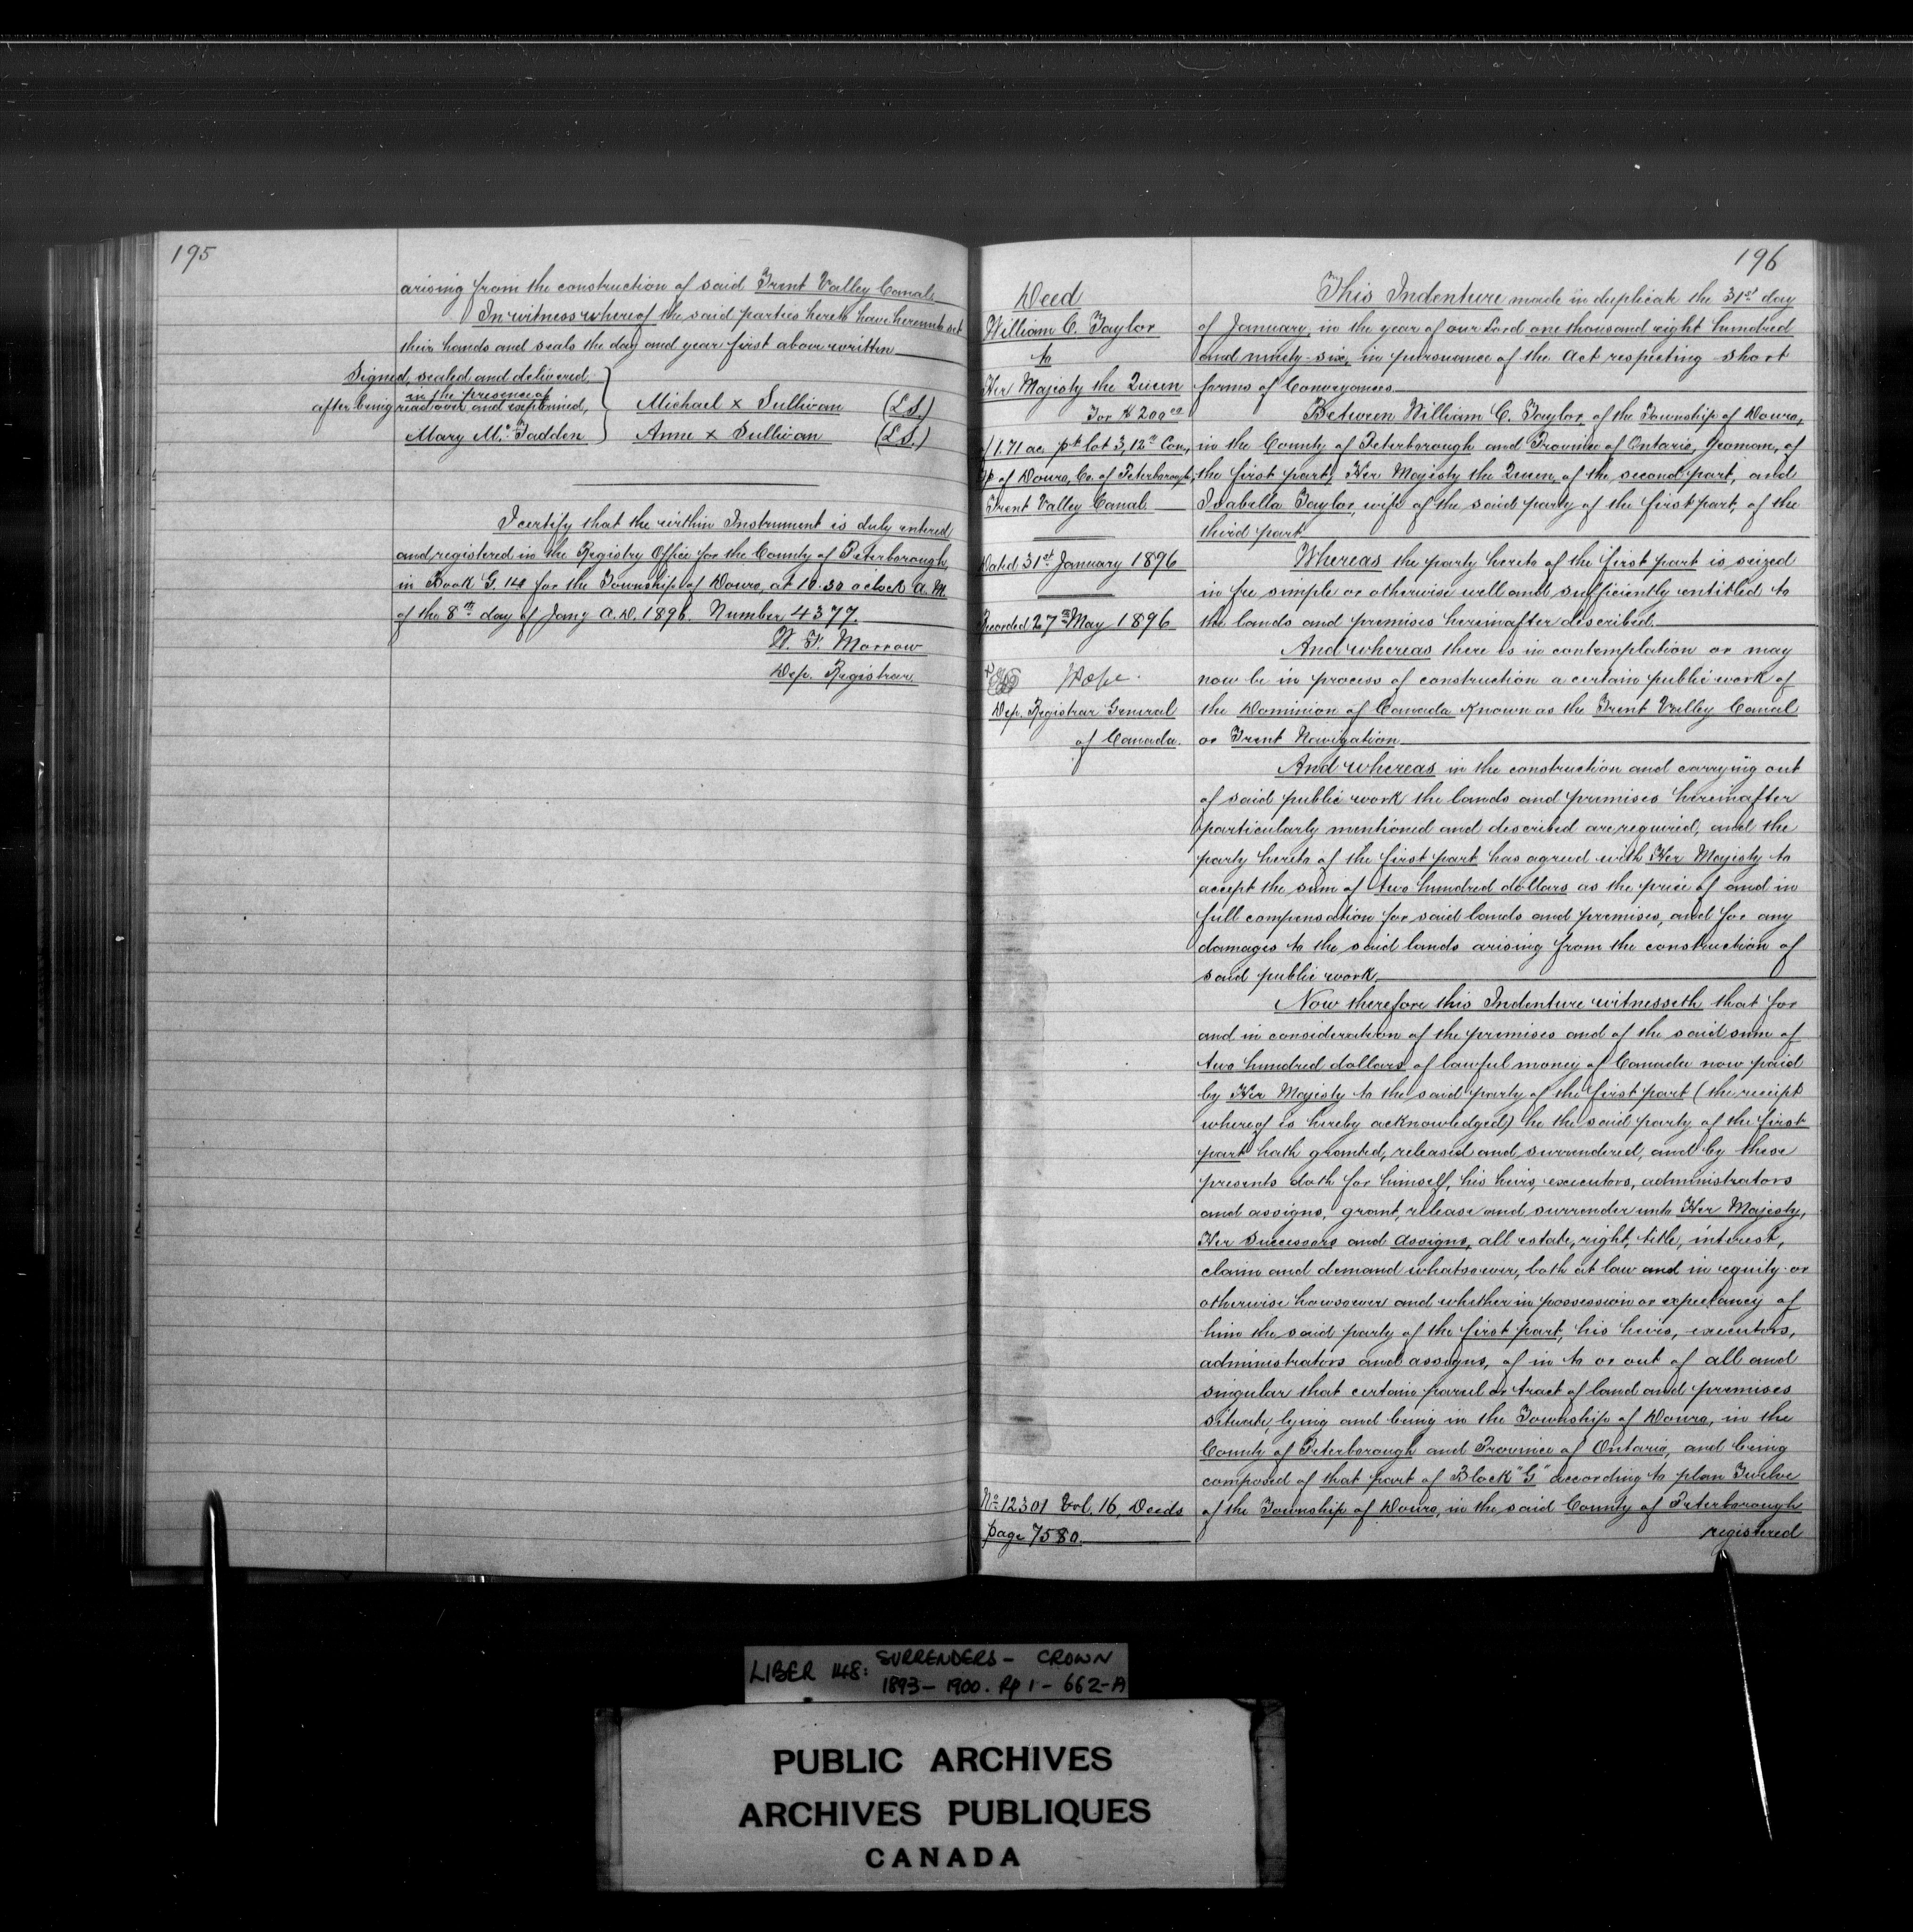 195
arising from the construction of said Trent Valley Canal.
In witness whereof the said parties hereto have hereunto set
their hands and seals the day and year first above written
Signed, sealed and delivered,
in the presence of
after being read over and explained,
Michael x Sullivan (L.S.)
Mary McFadden
Anne x Sullivan (L.S.)
I certify that the within Instrument is duly entered
and registered in the Registry Office for the County of Peterborough
in Book G. 14 for the Township of Douro, at 10.30 oclock A.M.
of the 8th day of Jany A.D. 1896. Number 4377.
Morrow
Dep. Registrar
196
Deed
William C. Taylor
to
Her Majesty the Queen
For $200.00
1.71 ac pt lot 3, 12th Con,
Tp of Douro, Co. of Peterborough,
Trent Valley Canal
Dated 31st January 1896
Recorded 27th May 1896
Pope
Dep. Registrar General
of Canada.
No 12301 Vol. 16, Deeds
page 7580
This Indenture made in duplicate the 31st day
of January, in the year of our Lord one thousand eight hundred
and ninety-six, in pursuance of the Act respecting short
forms of Conveyances
Between William C. Taylor, of the Township of Douro,
in the County of Peterborough and Province of Ontario, Yeoman, of
the first part, Her Majesty the Queen, of the second part, and
Isabella Taylor, wife of the said party of the first part, of the
third part
Whereas the party hereto of the first part is seized
in fee simple or otherwise well and sufficiently entitled to
the lands and premises hereinafter described.
And whereas there is in contemplation or may
now be in process of construction a certain public work of
the Dominion of Canada known as the Trent Valley Canal
or Trent Navigation
And whereas in the construction and carrying out
of said public work the lands and premises hereinafter
particularly mentioned and described are required, and the
party hereto of the first part has agreed with Her Majesty to
accept the sum of two hundred dollars as the price of and in
full compensation for said lands and premises, and for any
damages to the said lands arising from the construction of
said public work.
Now therefore this Indenture witnesseth that for
and in consideration of the premises and of the said sum of
two hundred dollars of lawful money of Canada now paid
by Her Majesty to the said party of the first part (the receipt
whereof is hereby acknowledged) he the said party of the first
part hath granted, released and surrendered, and by these
presents doth for himself, his heirs, executors, administrators
and assigns, grant, release and surrender unto Her Majesty,
Her Successors and Assigns, all estate, right, title, interest,
claim and demand whatsoever, both at law and in equity or
otherwise howsoever and whether in possession or expectancy of
him the said party of the first part, his heirs, executors,
administrators and assigns, of in to or out of all and
singular that certain parcel or tract of land and premises
situate, lying and being in the Township of Douro, in the
County of Peterborough and Province of Ontario, and being
composed of that part of Block "G" according to plan Twelve
of the Township of Douro, in the said County of Peterborough
registered
LIBER 148: SURRENDERS - CROWN
1893 - 1900. Pp 1 - 662-A
PUBLIC ARCHIVES
ARCHIVES PUBLIQUES
CANADA